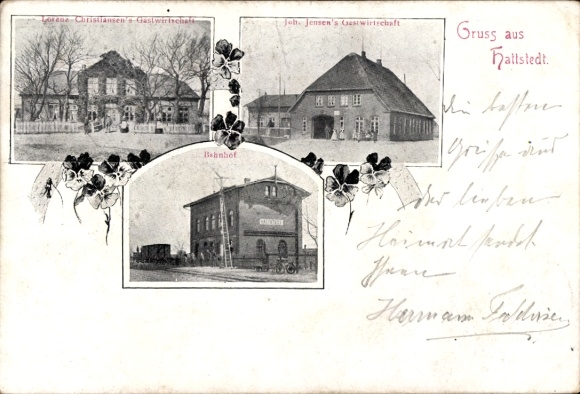 Lorenz Christiansen's Gastwirtschaft
Joh. Jensen's Gastwirtschaft
Gruss aus
Hattstedt.
Bahnhof.
HATTSTEDT
Die besten
Grüsse aus
der lieben
Heimat sendet
Ihnen
Hermann